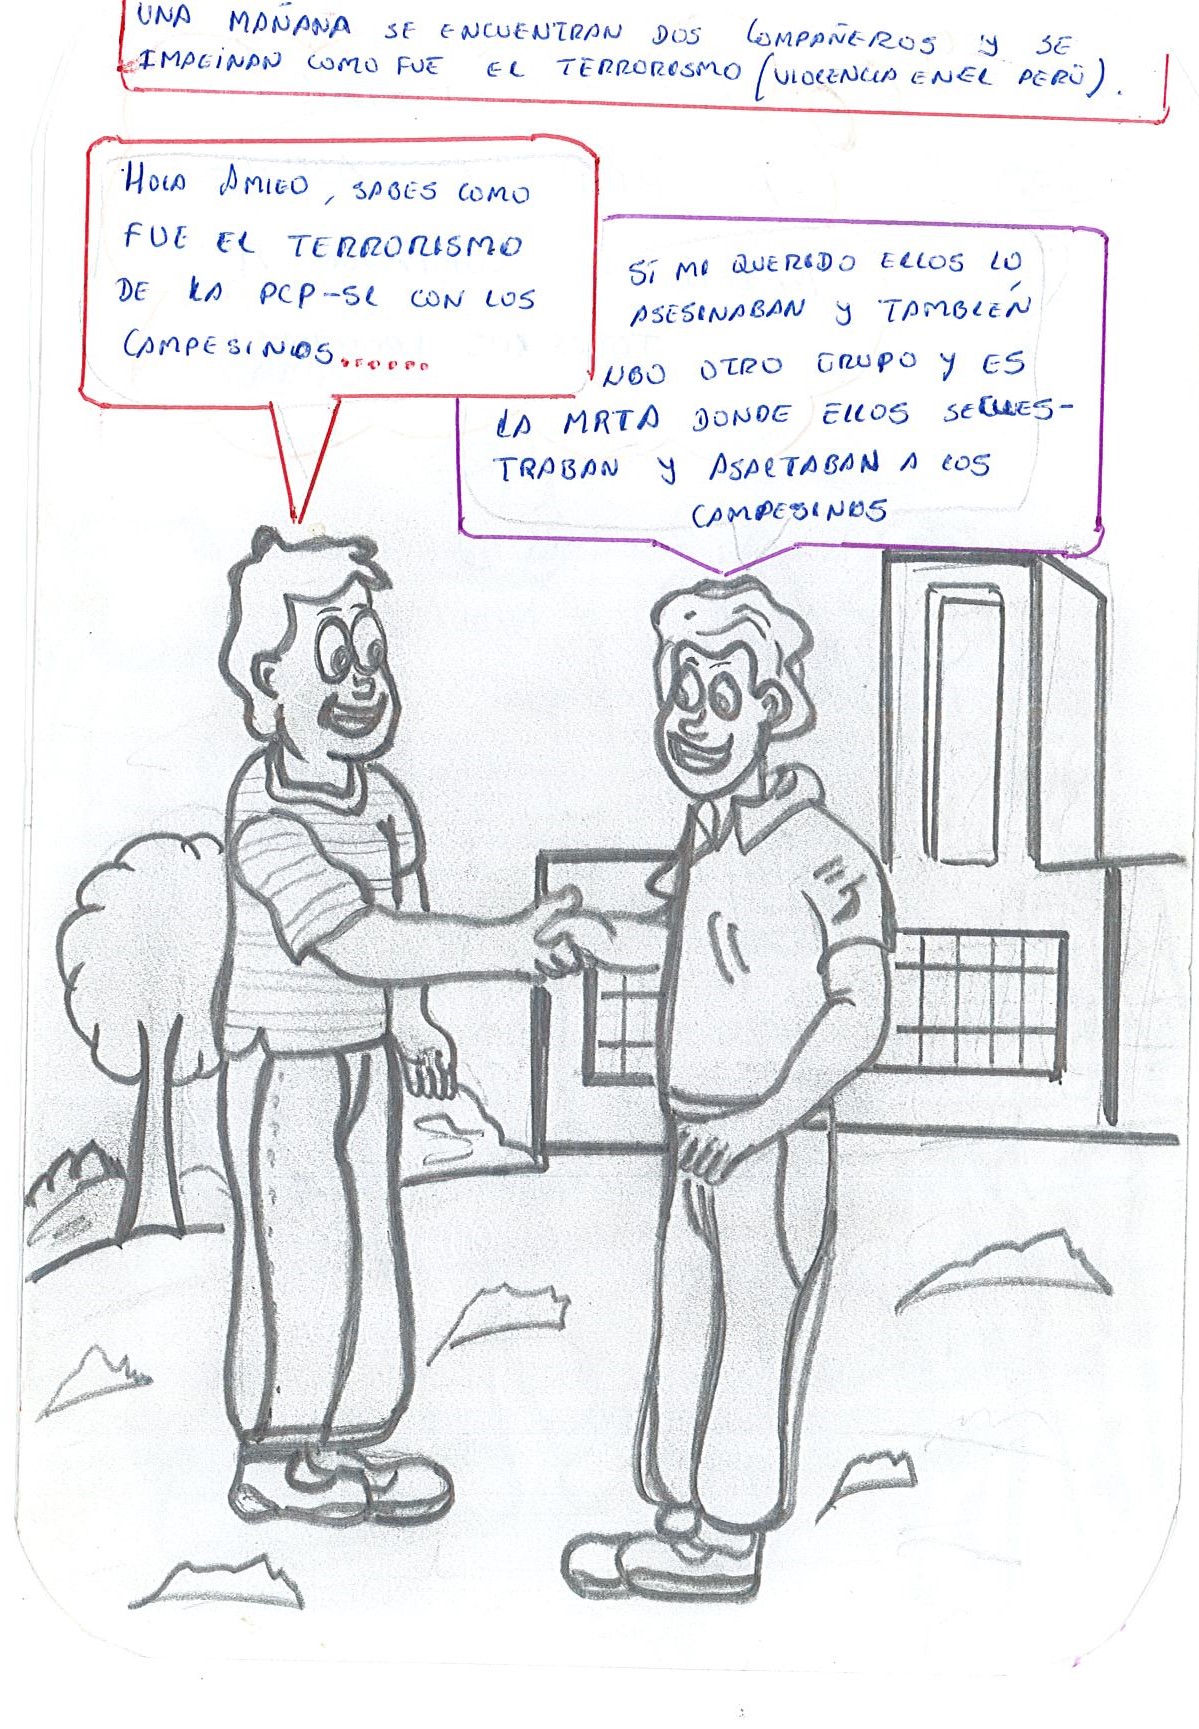 UNA MAÑANA SE ENCUENTRAN DOS COMPAÑEROS Y SE
IMAGINAN COMO FUE EL TERRORISMO (VIOLENCIA EN EL PERÚ).
HOLA AMIGO, SABES COMO
FUE EL TERRORISMO
DE LA PCP-SL CON LOS
CAMPESINOS.......
SÍ MI QUERIDO ELLOS LO
ASESINABAN Y TAMBIÉN
UBO OTRO GRUPO Y ES
LA MRTA DONDE ELLOS SECUES-
TRABAN Y ASALTABAN A LOS
CAMPESINOS